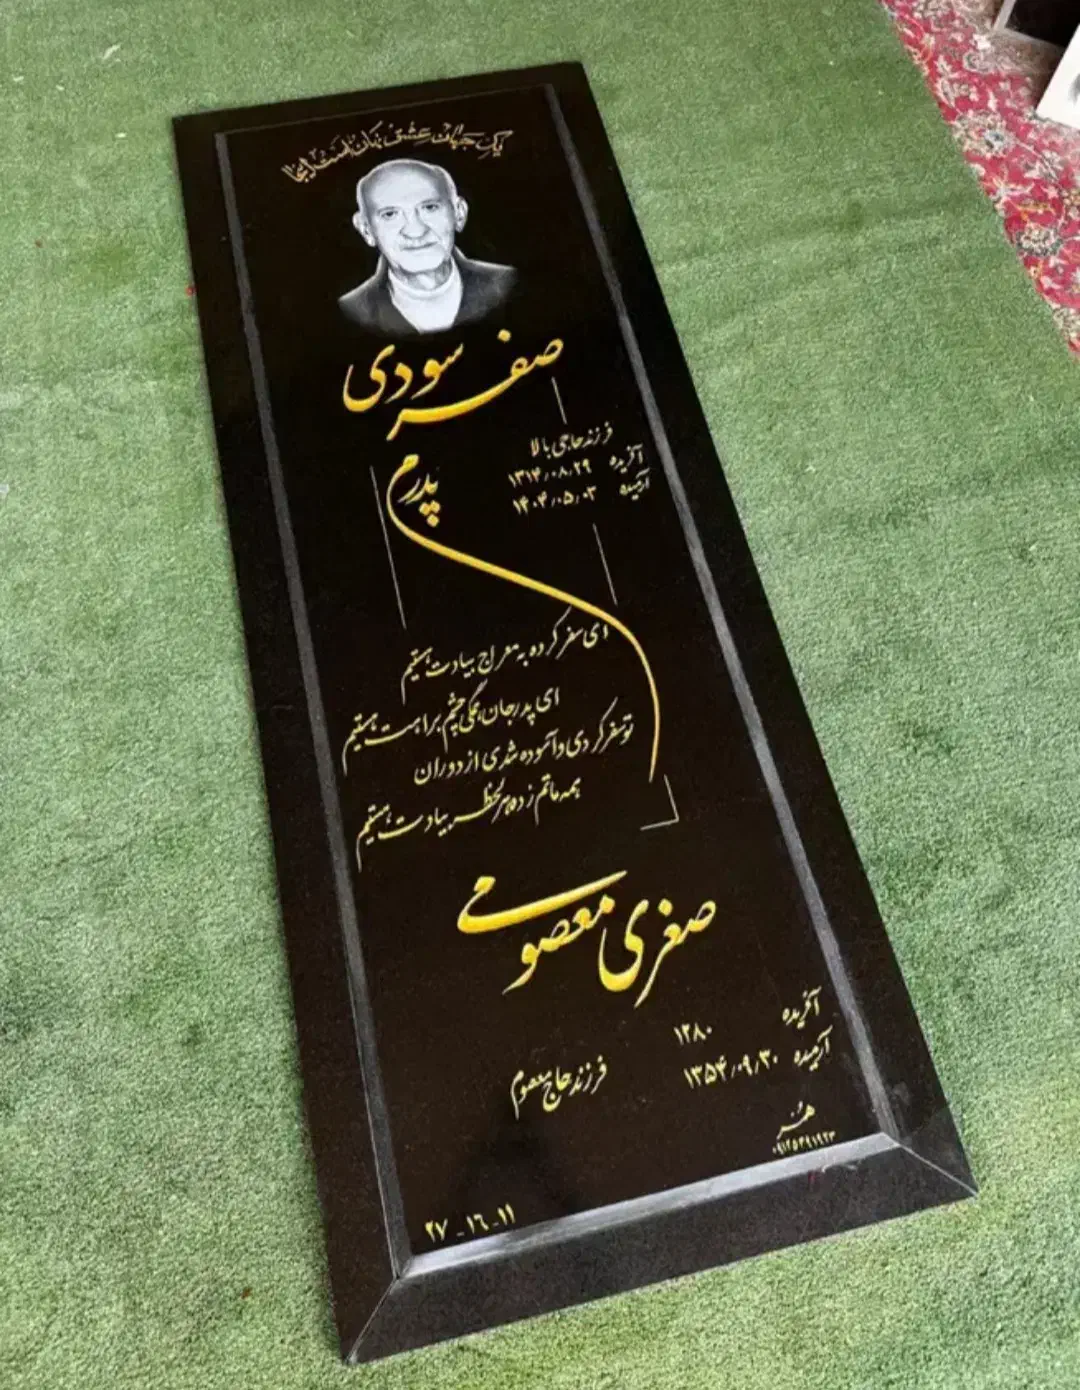 یک جهان عشق نهان است اینجا
صفر سودی
فرزند حاجی بالا
آفریده ۱۳۱۴/۰۸/۲۹
آرمیده ۱۴۰۴/۰۵/۰۳
پدرم
ای سفر کرده به معراج بیادت هستیم
ای پدر جان همگی چشم براهت هستیم
تو سفر کردی و آسوده شدی از دوران
همه ماتم زده هر لحظه بیادت هستیم
صغری معصومی
آفریده ۱۲۸۰
آرمیده ۱۳۵۴/۰۹/۳۰
فرزند حاج معصوم
هنر
۰۹۱۲۵۴۹۱۹۲۳
۲۷ - ۱۶ - ۱۱